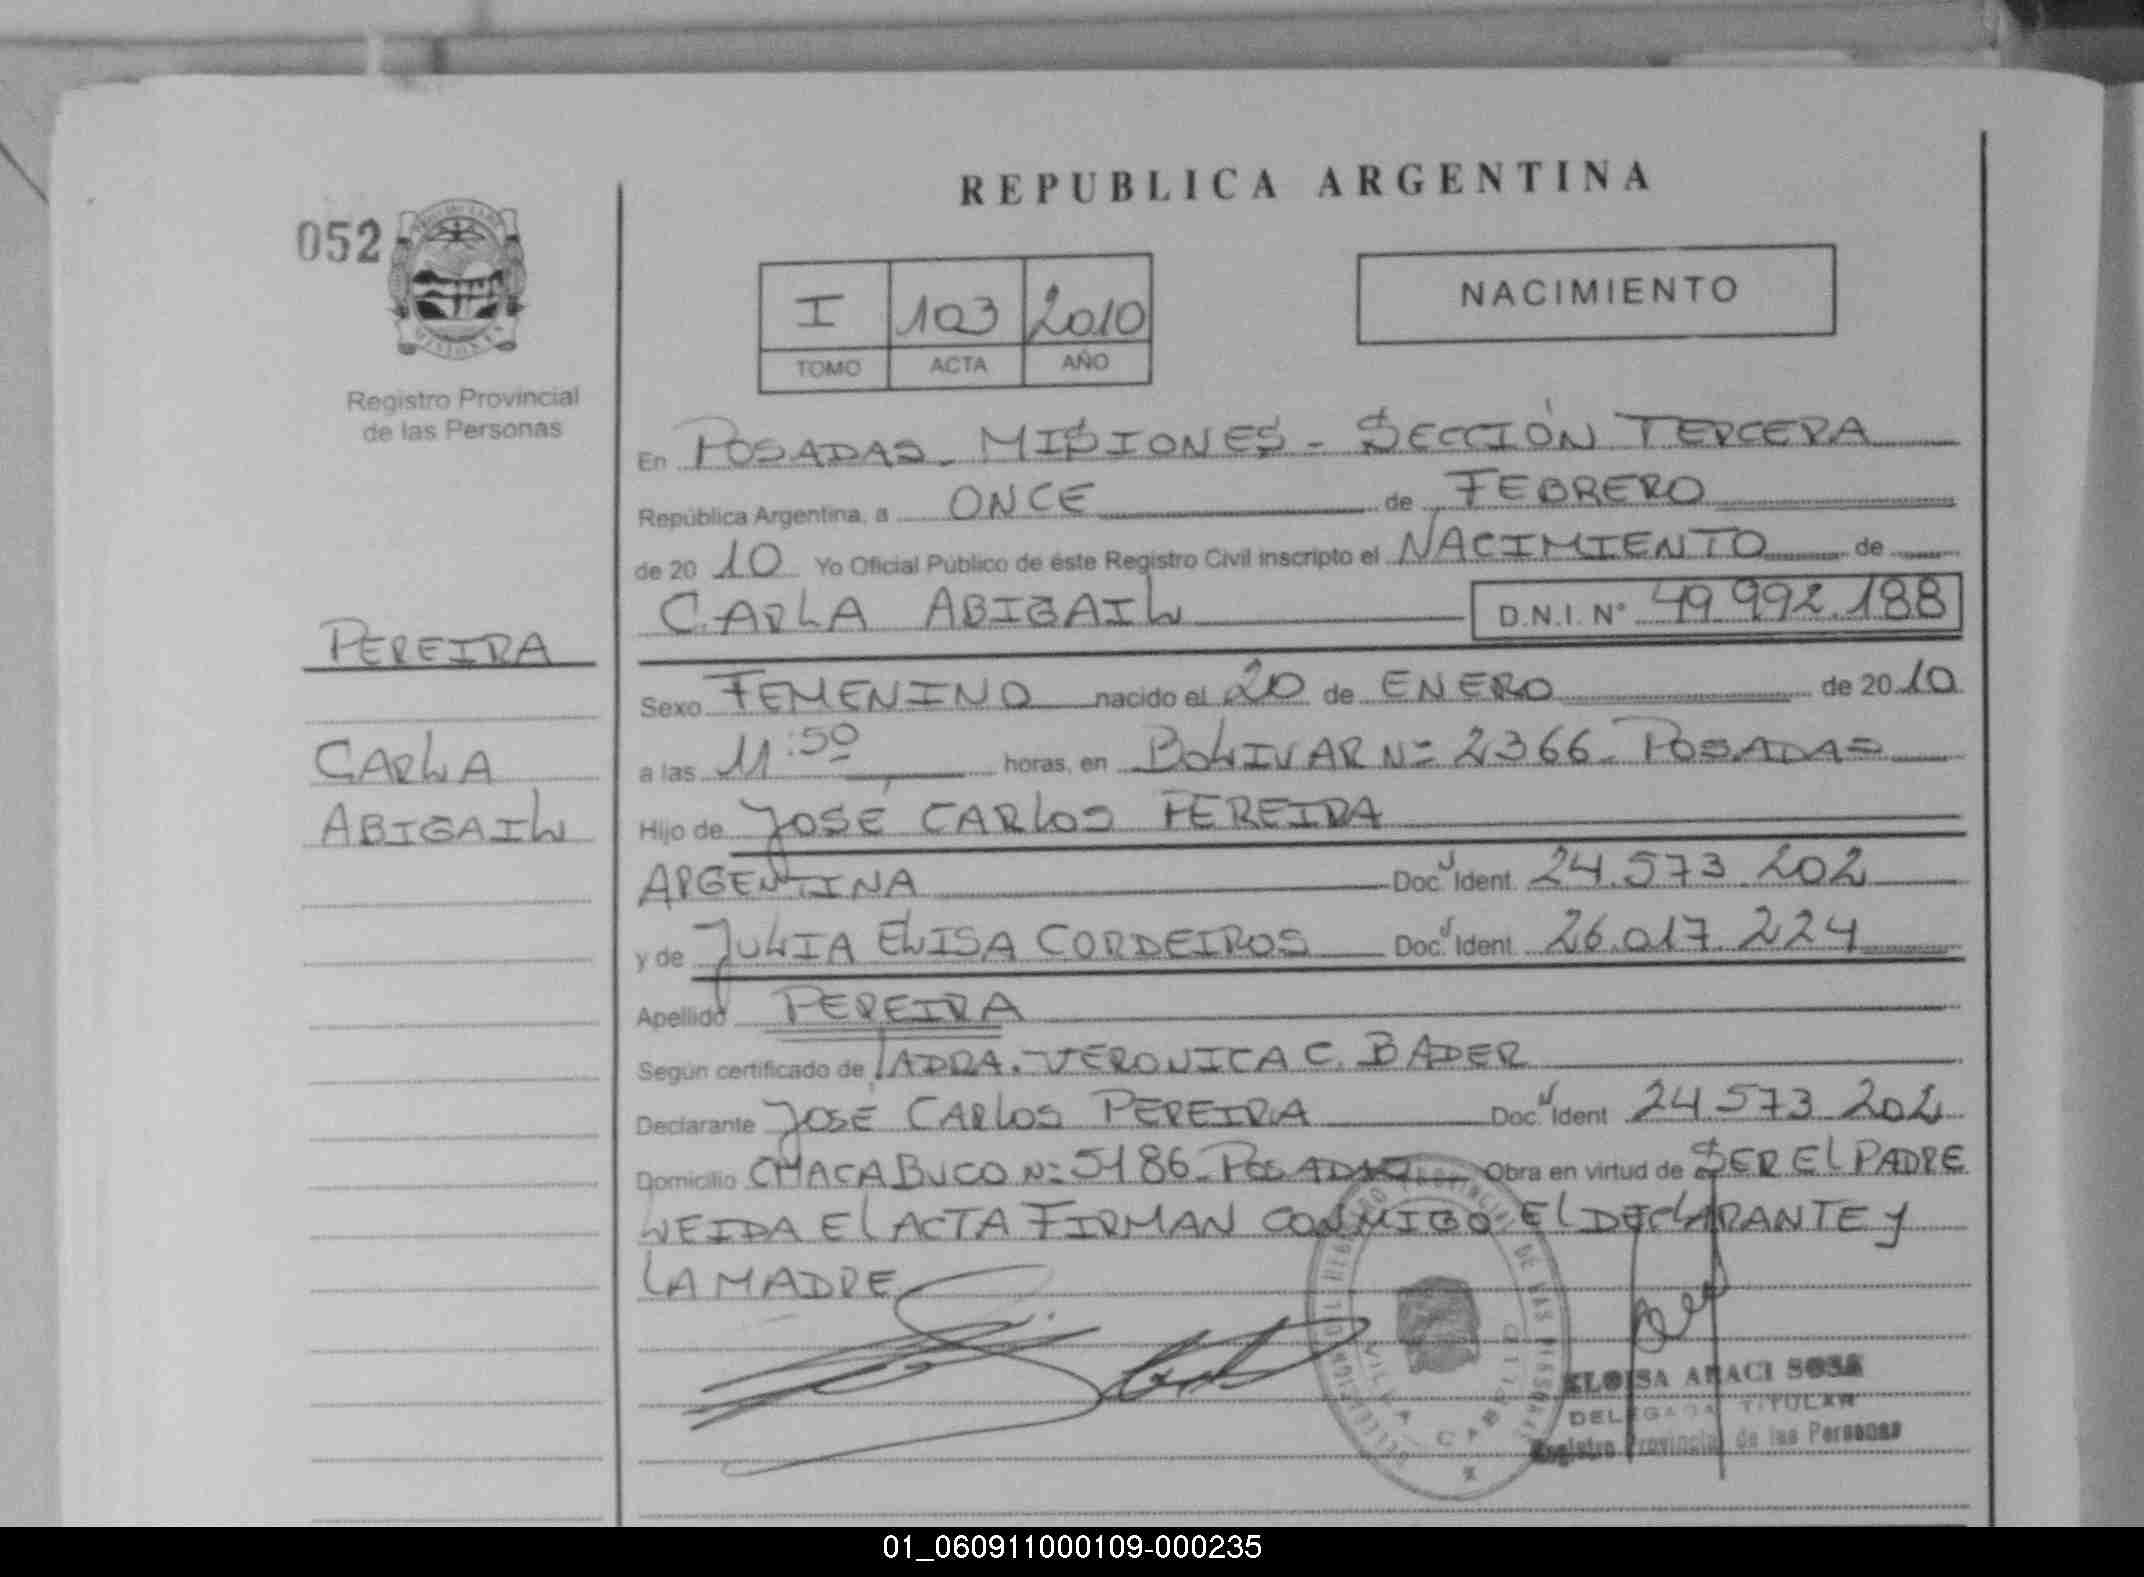 REPUBLICA ARGENTINA
052
I 103 2010
TOMO ACTA AÑO
NACIMIENTO
Registro Provincial
de las Personas
En POSADAS - MISIONES - SECCIÓN TERCERA
República Argentina, a ONCE de FEBRERO
de 20 10 Yo Oficial Público de éste Registro Civil inscripto el NACIMIENTO de
CARLA ABIGAIL D.N.I. N° 49.992.188
PEREIRA
Sexo FEMENINO nacido el 20 de ENERO de 20 10
CARLA
a las 11:50 horas, en BOLIVAR Nº 2366 - POSADAS
ABIGAIL
Hijo de JOSÉ CARLOS PEREIRA
ARGENTINA Doc. Ident. 24.573.202
y de JULIA ELISA CORDEIROS Doc. Ident. 26.017.224
Apellido PEREIRA
Según certificado de LA DRA. VERONICA C. BADER
Declarante JOSÉ CARLOS PEREIRA Doc. Ident 24.573.202
Domicilio CHACABUCO Nº 5186 - POSADAS Obra en virtud de SER EL PADRE
LEIDA EL ACTA FIRMAN CONMIGO EL DECLARANTE Y
LA MADRE
ELOISA ARACI SOSA
DELEGADA TITULAR
Registro Provincial de las Personas
01_060911000109-000235